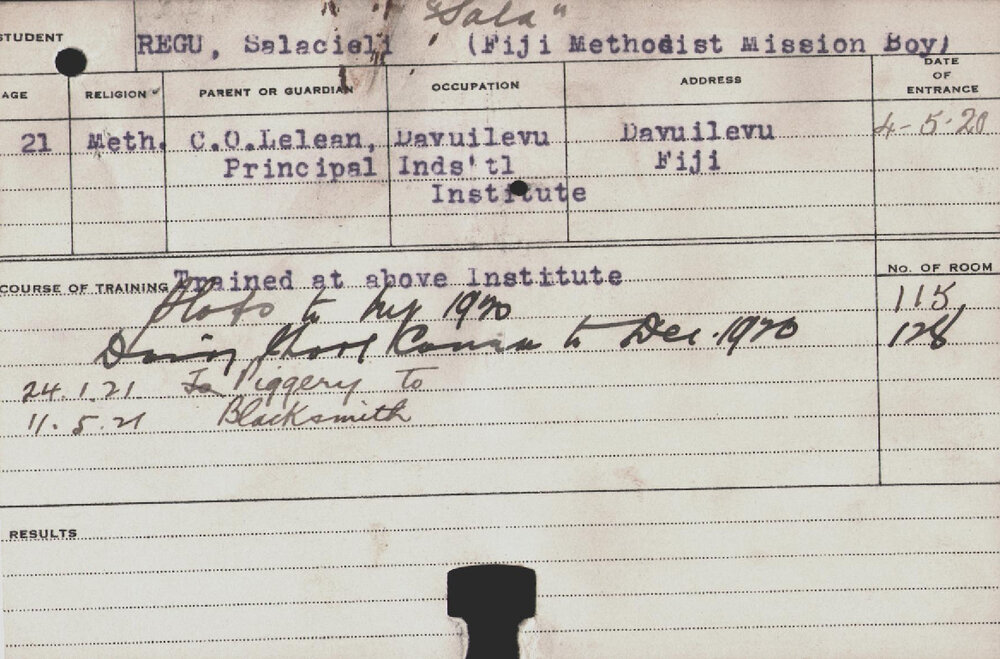 "Sala"
STUDENT REGU, Salacieli (Fiji Methodist Mission Boy)
AGE RELIGION PARENT OR GUARDIAN OCCUPATION ADDRESS DATE OF ENTRANCE
21 Meth. C.O.Lelean, Davuilevu Davuilevu 4-5-20
Principal Inds'tl Fiji
Institute
COURSE OF TRAINING Trained at above Institute No. OF ROOM
to 1920 115
to Dec. 1920 128
24.1.21 To Piggery to
11.5.21 Blacksmith
RESULTS